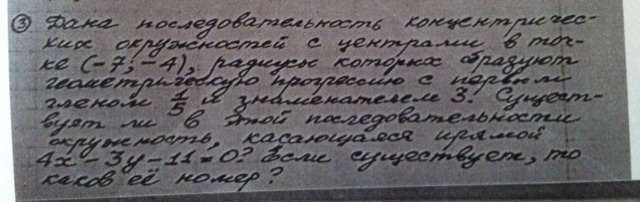 ③ Дана последовательность концентричес-
ких окружностей с центрами в точ-
ке (-7; -4), радиусы которых образуют
геометрическую прогрессию с первым
членом и знаменателем 3. Сущест-
вует ли в этой последовательности
окружность, касающаяся прямой
4x - 3y - 11 = 0? Если существует, то
каков её номер?